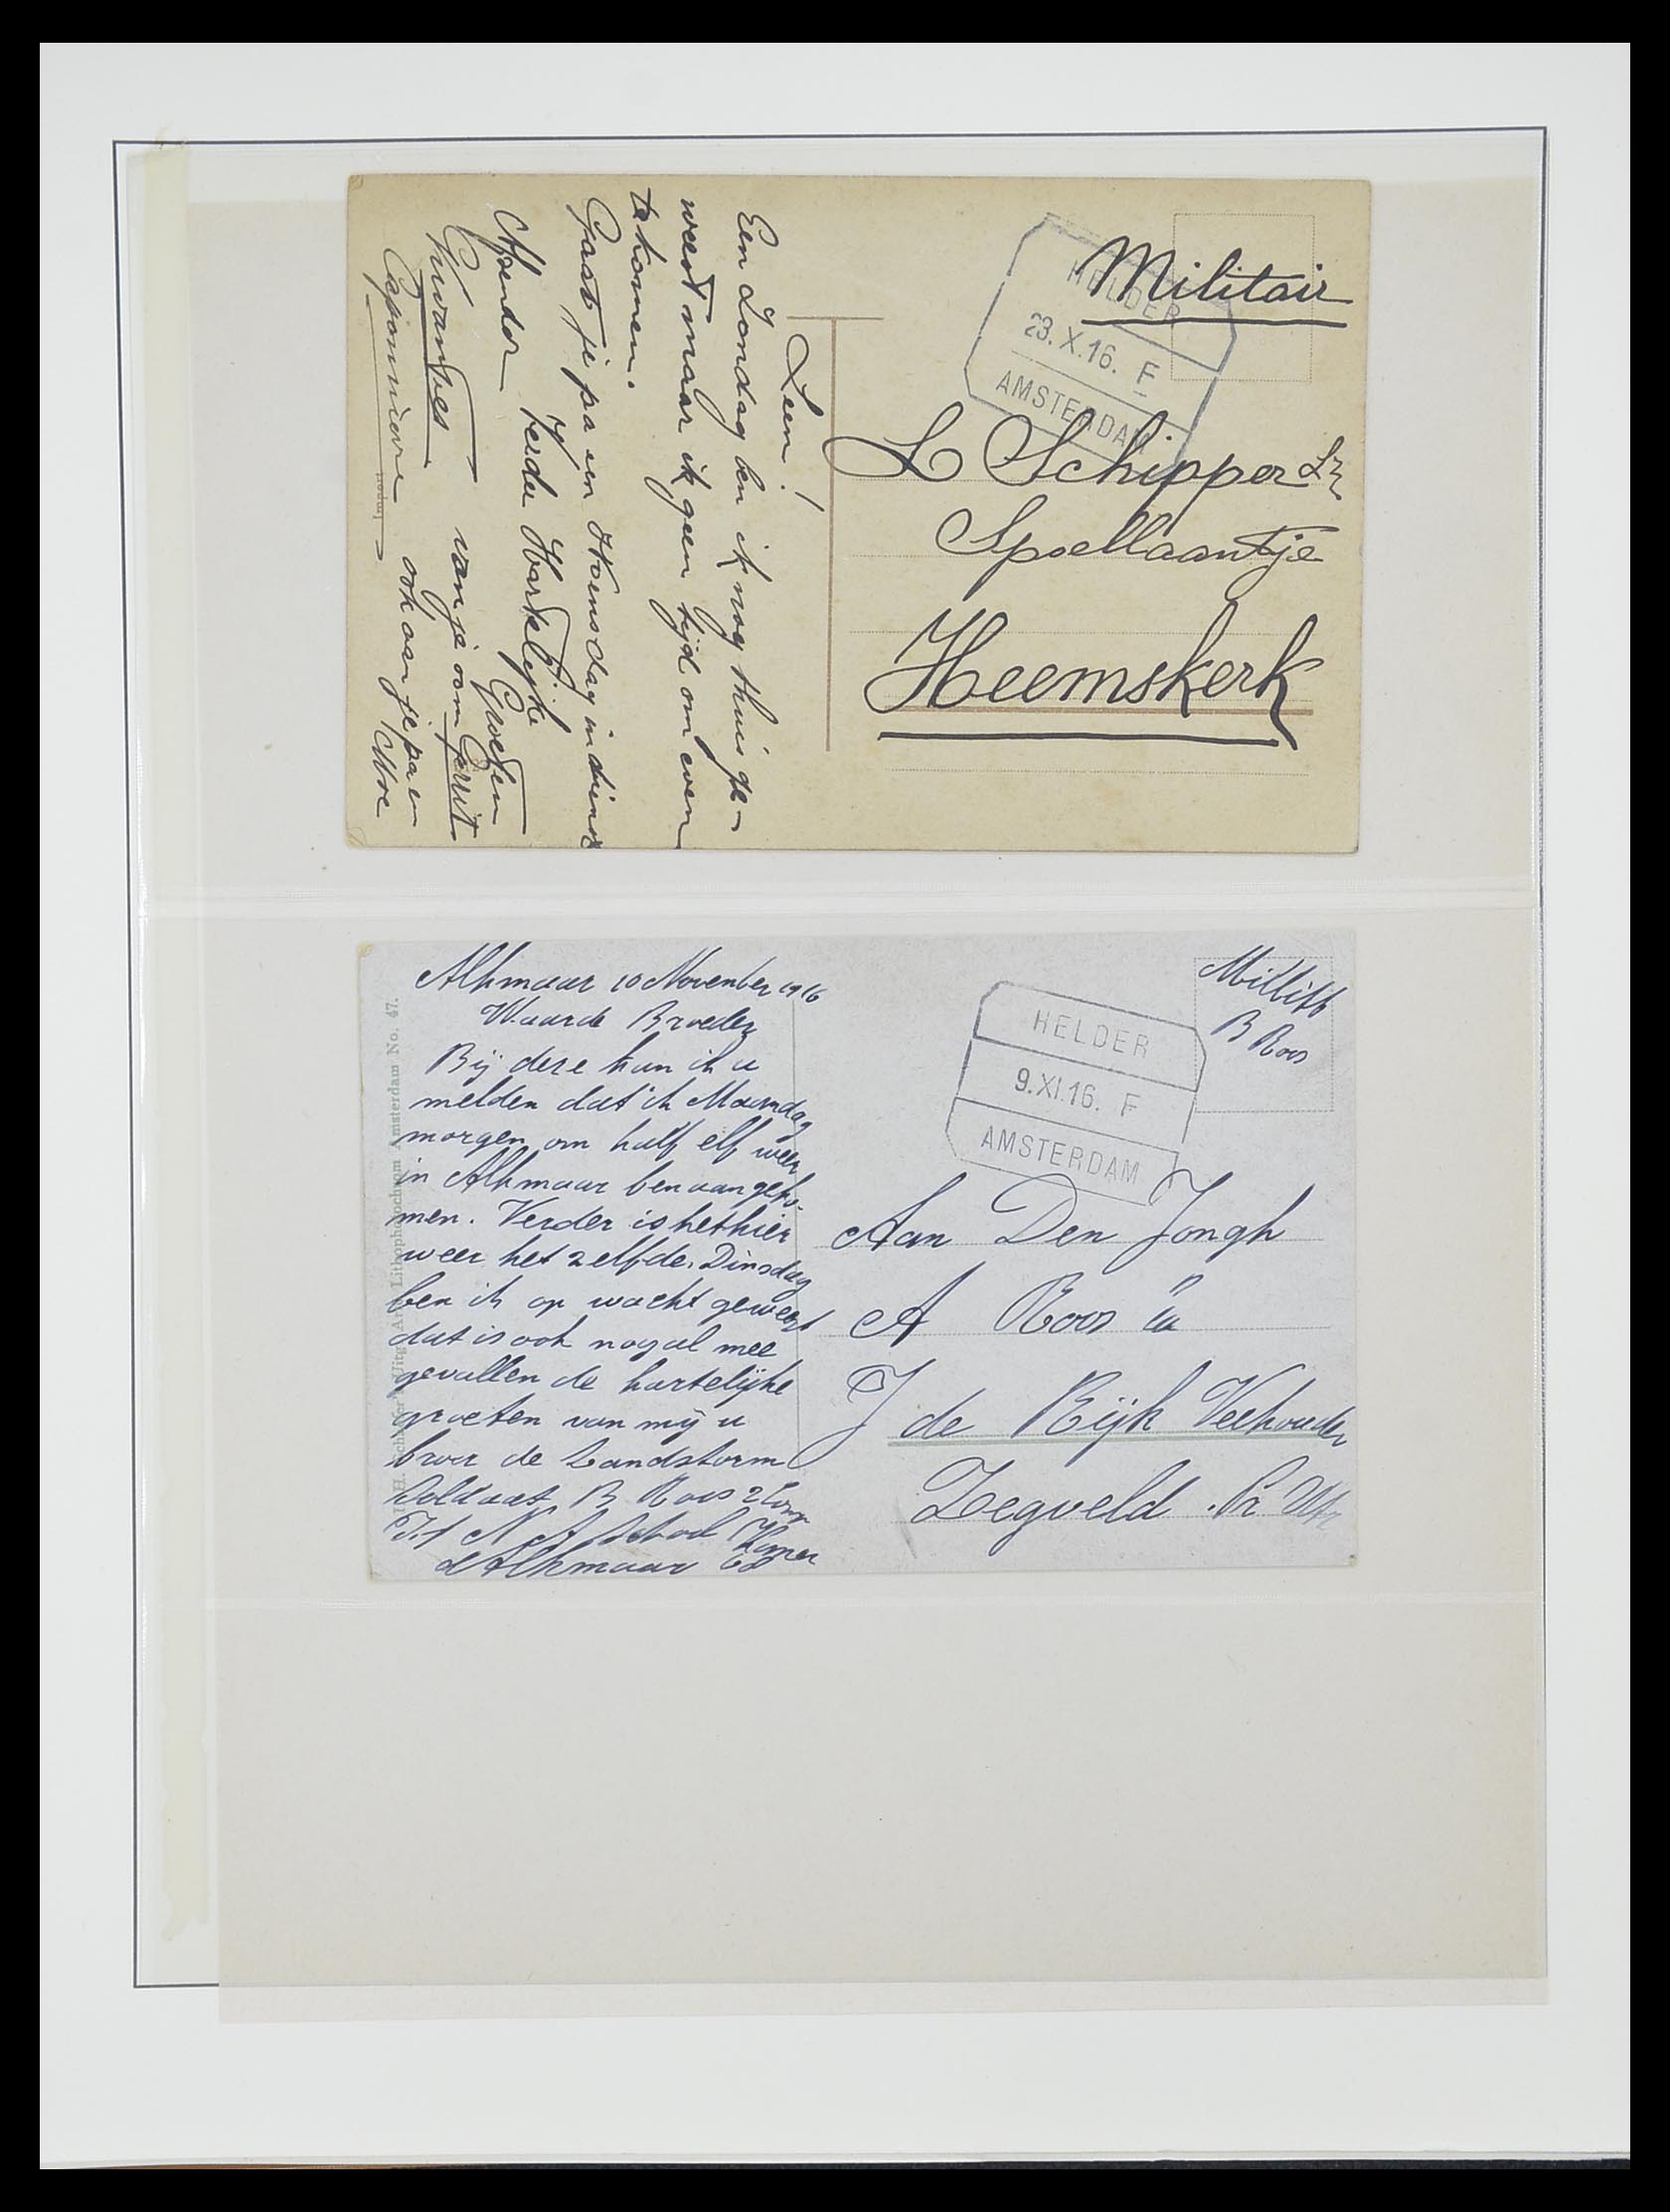 Militair
HELDER
23.X.16. F
AMSTERDAM
L Schipper Lz
Spoellaantje
Heemskerk
Leen!
Een Zondag ben ik nog thuis ge-
weest maar ik geen tijd om even
te komen.
Gaat je pa en Woensdag in dienst
Afzender Verder Hartelijke
Groeten
van je oom Gerrit
ook aan je pa en
Moe
Millitt
B Roos
HELDER
9.XI.16. F
AMSTERDAM
Aan Den Jongh
A Roos
J de Rijk Veehouder
Zegveld Pr Utr
Alkmaar 10 November 1916
Waarde Broeder
Bij deze kan ik u
melden dat ik Maandag
morgen om half elf weer
in Alkmaar ben aangeko-
men. Verder is het hier
weer het zelfde. Dinsdag
ben ik op wacht geweest
dat is ook nogal mee
gevallen de hartelijke
groeten van mij u
broer de Landstorm
Soldaat B Roos 2 Comp
Kamer
Alkmaar
Amsterdam No. 47.